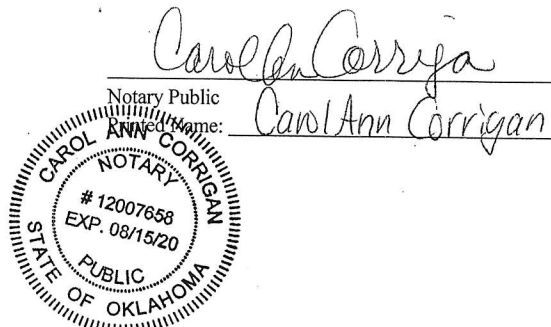 Carol Ann Corrigan
Notary Public
Printed Name: Carol Ann Corrigan
CAROL ANN CORRIGAN
NOTARY
# 12007658
EXP. 08/15/20
PUBLIC
STATE OF OKLAHOMA